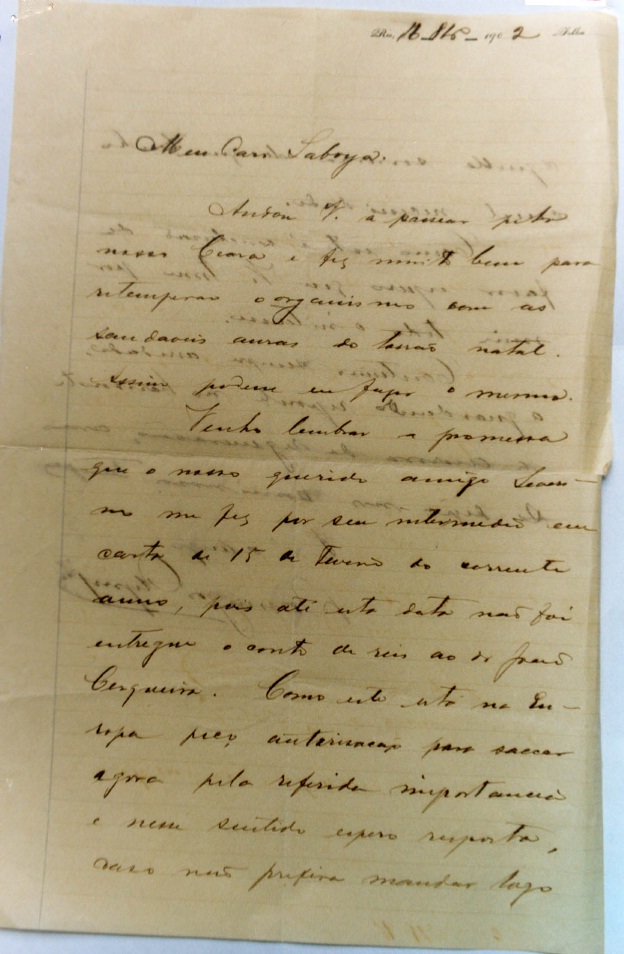 Rio, 16 - 8bro - 1902
Meu Caro Saboya.
Andou V. a passear pelo
nosso Ceará e fez muito bem para
retemperar o organismo com as
saudaveis auras do torrão natal.
Assim podesse eu fazer o mesmo.
Venho lembrar a promessa
que o nosso querido amigo Severi-
no me fez por seu intermedio em
carta de 15 de Fevero do corrente
anno, pois até esta data não foi
entregue o conto de reis ao dr João
Cerqueira. Como este esta na Eu-
ropa peço autorisação para saccar
agora pela referida importancia
e nesse sentido espero resposta,
caso não prefira mandar logo